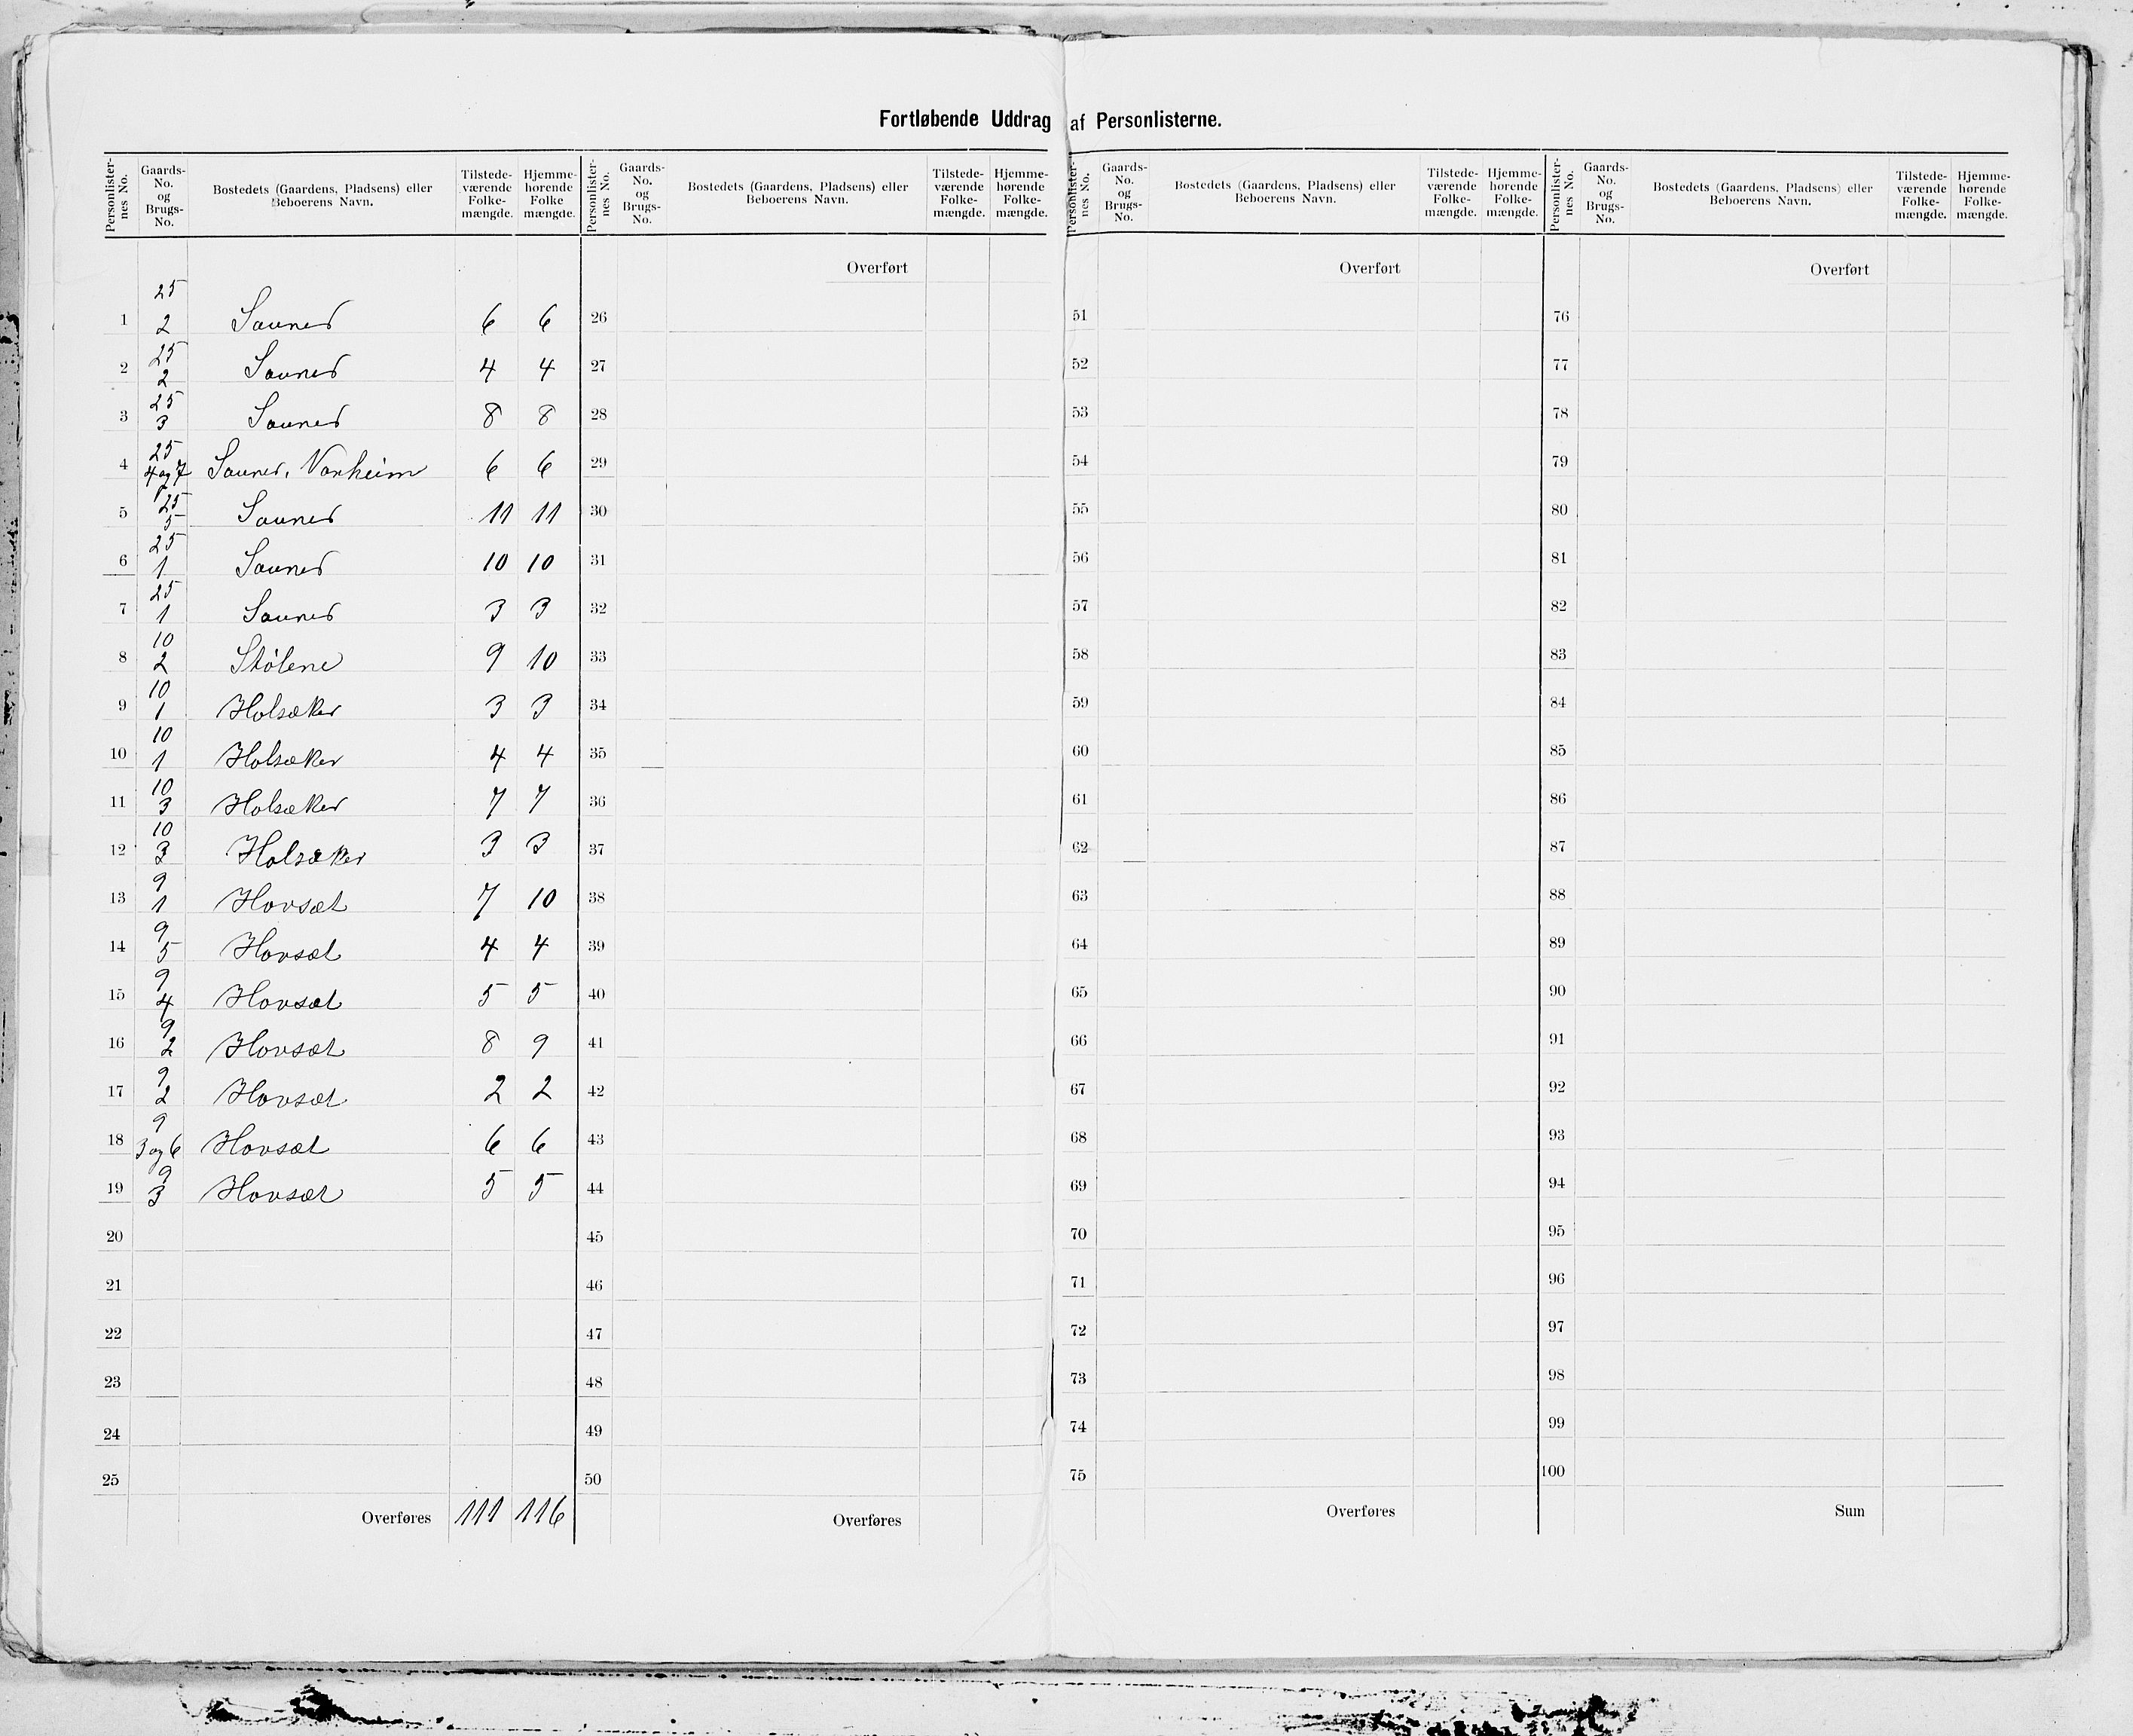 Fortløbende Uddrag af Personlisterne.
Personlister-nes No. Gaards-No. og Brugs-No. Bostedets (Gaardens, Pladsens) eller Beboerens Navn. Tilstede-værende Folke-mængde. Hjemme-hørende Folke mængde.
25
1 2 Saunes 6 6
25
2 2 Saunes 4 4
25
3 3 Saunes 8 8
25
4 4 og 7 Saunes, Vonheim 6 6
25
5 5 Saunes 11 11
25
6 1 Saunes 10 10
25
7 1 Saunes 3 3
10
8 2 Stølene 9 10
10
9 1 Holsæker 3 3
10
10 1 Holsæker 4 4
10
11 3 Holsæker 7 7
10
12 3 Holsæker 3 3
9
13 1 Hovsæt 7 10
9
14 5 Hovsæt 4 4
9
15 4 Hovsæt 5 5
9
16 2 Hovsæt 8 9
9
17 2 Hovsæt 2 2
9
18 3 og 6 Hovsæt 6 6
9
19 3 Hovsæt 5 5
20
21
22
23
24
25
Overføres 111 116
Personlister-nes No. Gaards-No. og Brugs-No. Bostedets (Gaardens, Pladsens) eller Beboerens Navn. Tilstede-værende Folke-mængde. Hjemme-hørende Folke-mængde.
Overført
26
27
28
29
30
31
32
33
34
35
36
37
38
39
40
41
42
43
44
45
46
47
48
49
50
Overføres
Personlister-nes No. Gaards-No. og Brugs-No. Bostedets (Gaardens, Pladsens) eller Beboerens Navn. Tilstede-værende Folke-mængde. Hjemme-hørende Folke-mængde.
Overført
51
52
53
54
55
56
57
58
59
60
61
62
63
64
65
66
67
68
69
70
71
72
73
74
75
Overføres
Personlister-nes No. Gaards-No. og Brugs-No. Bostedets (Gaardens, Pladsens) eller Beboerens Navn. Tilstede-værende Folke-mængde. Hjemme-hørende Folke-mængde.
Overført
76
77
78
79
80
81
82
83
84
85
86
87
88
89
90
91
92
93
94
95
96
97
98
99
100
Sum